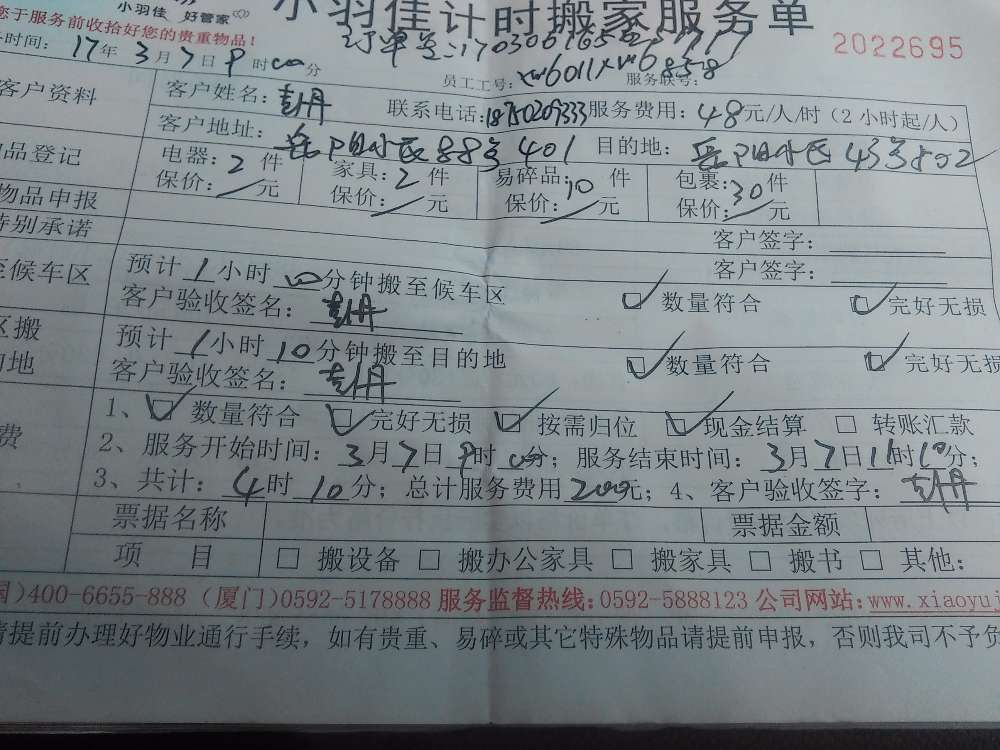 小羽佳 好管家
小羽佳计时搬家服务单
您于服务前收拾好您的贵重物品！
2022695
时间：17年3月7日9时00分
员工工号：xm6011xm6 服务联号：8578
客户资料 客户姓名：彭丹 联系电话：18750209333 服务费用：48元/人/时（2小时起/人）
客户地址：岳阳小区88号401 目的地：岳阳小区43号802
品登记 电器：2件 家具：2件 易碎品：10件 包裹：30件
保价：/元 保价：/元 保价：/元 保价：/元
物品申报
特别承诺 客户签字：
客户签字：
至候车区 预计1小时00分钟搬至候车区
客户验收签名：彭丹 ☑ 数量符合 ☑ 完好无损
区搬 预计1小时10分钟搬至目的地
的地 客户验收签名：彭丹 ☑ 数量符合 ☑ 完好无损
费 1、☑ 数量符合 ☑ 完好无损 ☑ 按需归位 ☑ 现金结算 □ 转账汇款
2、服务开始时间：3月7日9时00分；服务结束时间：3月7日11时10分；
3、共计：4时10分；总计服务费用200元；4、客户验收签字：彭丹
票据名称 票据金额
项 目 □ 搬设备 □ 搬办公家具 □ 搬家具 □ 搬书 □ 其他：
国)400-6655-888 (厦门)0592-5178888 服务监督热线：0592-5888123 公司网站：www.xiaoyuj
请提前办理好物业通行手续，如有贵重、易碎或其它特殊物品请提前申报，否则我司不予负